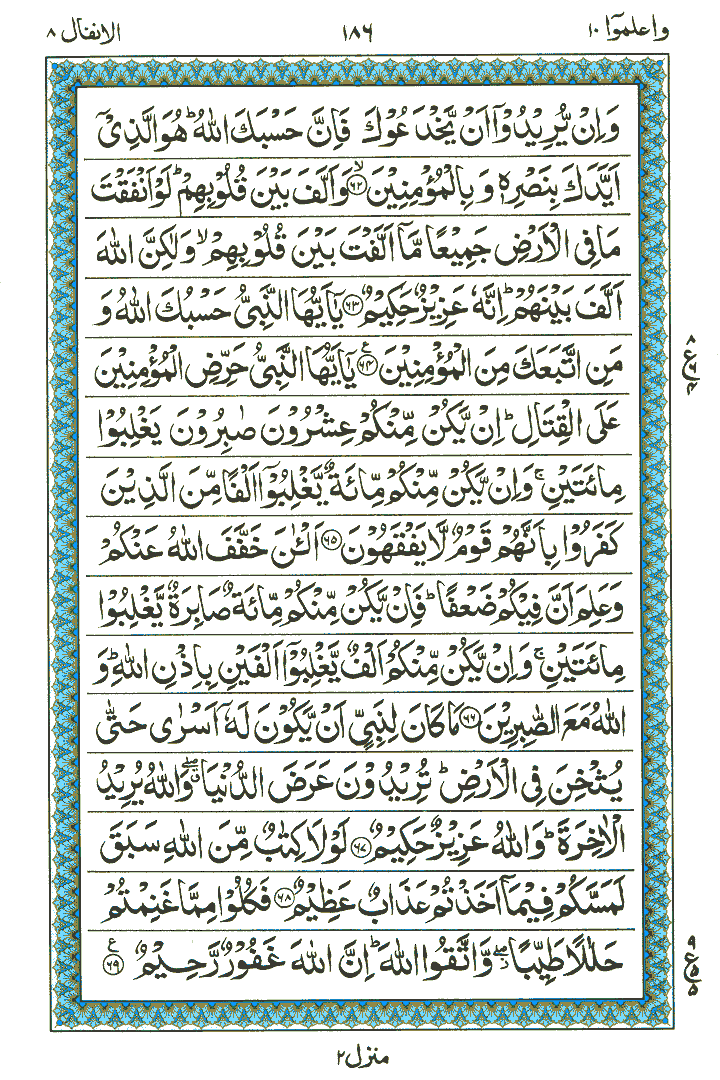 واعلموٓا ١٠ ١٨٦ الانفال ٨
وَاِنْ يُّرِيْدُوْٓا اَنْ يَّخْدَعُوْكَ فَاِنَّ حَسْبَكَ اللّٰهُ ؕ هُوَ الَّذِىْٓ
اَيَّدَكَ بِنَصْرِهٖ وَ بِالْمُؤْمِنِيْنَ ۙ﴿۶۲﴾ وَاَلَّفَ بَيْنَ قُلُوْبِهِمْ ؕ لَوْ اَنْفَقْتَ
مَا فِى الْاَرْضِ جَمِيْعًا مَّاۤ اَلَّفْتَ بَيْنَ قُلُوْبِهِمْ ۙ وَلٰكِنَّ اللّٰهَ
اَلَّفَ بَيْنَهُمْ ؕ اِنَّهٗ عَزِيْزٌ حَكِيْمٌ ﴿۶۳﴾ يٰۤاَيُّهَا النَّبِىُّ حَسْبُكَ اللّٰهُ وَ
مَنِ اتَّبَعَكَ مِنَ الْمُؤْمِنِيْنَ ﴿۶۴﴾ ع يٰۤاَيُّهَا النَّبِىُّ حَرِّضِ الْمُؤْمِنِيْنَ
عَلَى الْقِتَالِ ؕ اِنْ يَّكُنْ مِّنْكُمْ عِشْرُوْنَ صٰبِرُوْنَ يَغْلِبُوْا
مِائَتَيْنِ ۚ وَاِنْ يَّكُنْ مِّنْكُمْ مِّائَةٌ يَّغْلِبُوْۤا اَلْفًا مِّنَ الَّذِيْنَ
كَفَرُوْا بِاَنَّهُمْ قَوْمٌ لَّا يَفْقَهُوْنَ ﴿۶۵﴾ اَلْـٰٔنَ خَفَّفَ اللّٰهُ عَنْكُمْ
وَعَلِمَ اَنَّ فِيْكُمْ ضَعْفًا ؕ فَاِنْ يَّكُنْ مِّنْكُمْ مِّائَةٌ صَابِرَةٌ يَّغْلِبُوْا
مِائَتَيْنِ ۚ وَاِنْ يَّكُنْ مِّنْكُمْ اَلْفٌ يَّغْلِبُوْۤا اَلْفَيْنِ بِاِذْنِ اللّٰهِ ؕ وَ
اللّٰهُ مَعَ الصّٰبِرِيْنَ ﴿۶۶﴾ مَا كَانَ لِنَبِىٍّ اَنْ يَّكُوْنَ لَهٗۤ اَسْرٰى حَتّٰى
يُثْخِنَ فِى الْاَرْضِ ؕ تُرِيْدُوْنَ عَرَضَ الدُّنْيَا ۖ وَاللّٰهُ يُرِيْدُ
الْاٰخِرَةَ ؕ وَاللّٰهُ عَزِيْزٌ حَكِيْمٌ ﴿۶۷﴾ لَوْلَا كِتٰبٌ مِّنَ اللّٰهِ سَبَقَ
لَمَسَّكُمْ فِيْمَاۤ اَخَذْتُمْ عَذَابٌ عَظِيْمٌ ﴿۶۸﴾ فَكُلُوْا مِمَّا غَنِمْتُمْ
حَلٰلًا طَيِّبًا ۖ وَّاتَّقُوا اللّٰهَ ؕ اِنَّ اللّٰهَ غَفُوْرٌ رَّحِيْمٌ ﴿۶۹﴾ ع
منزل ٢